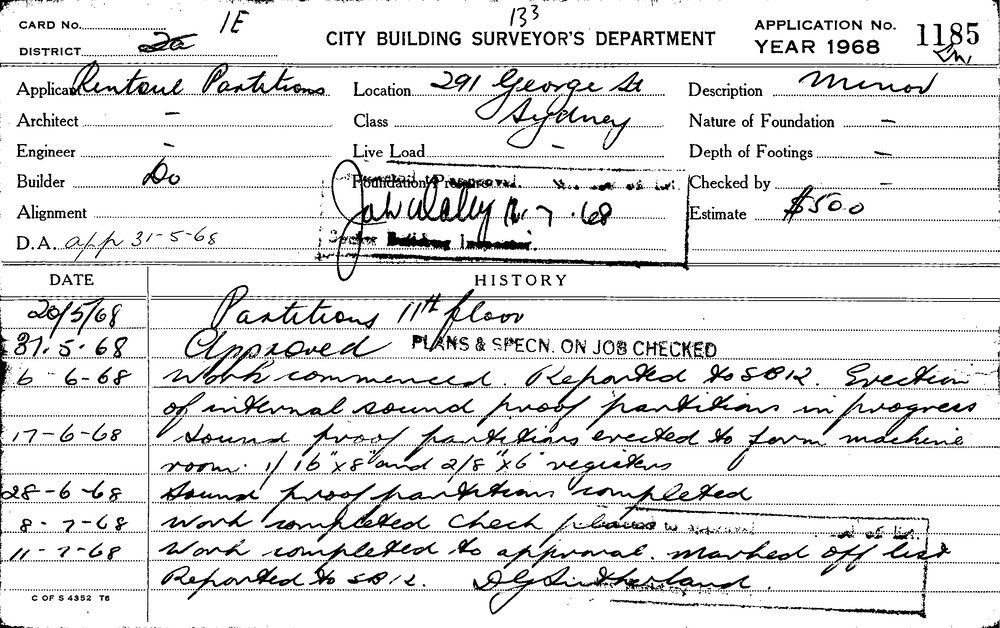 CARD No. 1E
133
DISTRICT 2a
CITY BUILDING SURVEYOR'S DEPARTMENT
APPLICATION No. 1185
YEAR 1968
Applicant Rentoul Partitions
Location 291 George St
Sydney
Description Minor
Architect –
Class
Nature of Foundation –
Engineer –
Live Load –
Depth of Footings –
Builder Do
Checked by –
12.7.68
Alignment
Estimate $500
Building Inspector.
D.A. app 31-5-68
DATE
HISTORY
20/5/68 Partitions 11th floor
31.5.68 Approved PLANS & SPECN. ON JOB CHECKED
6-6-68 Work commenced. Reported to SB12. Erection
of internal sound proof partitions in progress
17-6-68 Sound proof partitions erected to form machine
room. 1/ 16"x8" and 2/8"x6" registers
28-6-68 Sound proof partitions completed
8-7-68 Work completed check plans
11-7-68 Work completed to approval. Marked off list
Reported to SB12. DG Sutherland.
C OF S 4352 T6